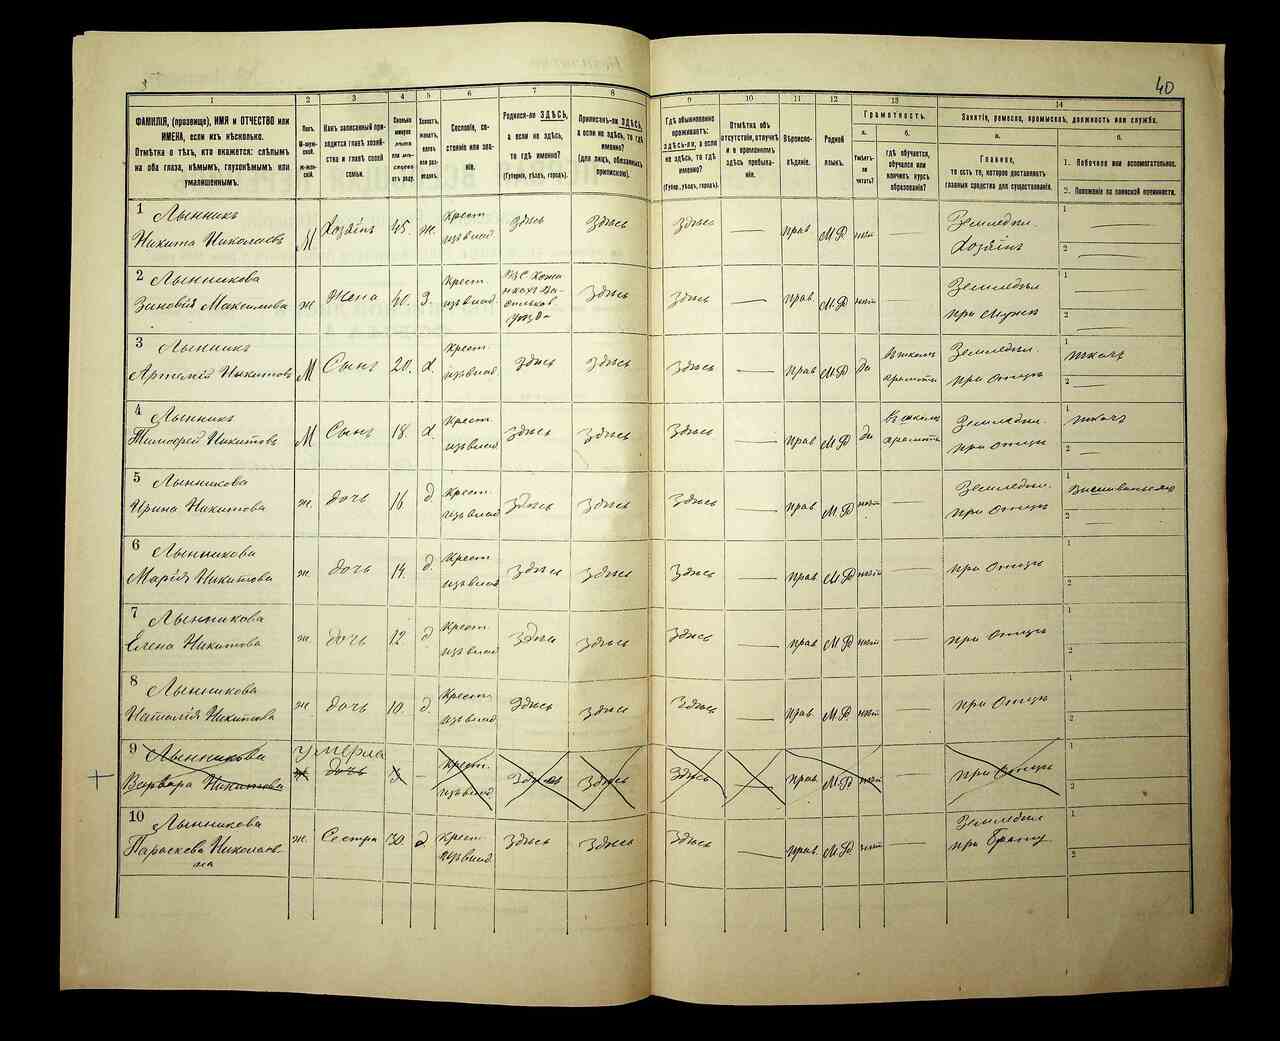 40
1 2 3 4 5 6 7 8 9 10 11 12 13 14
ФАМИЛІЯ, (прозвище), ИМЯ и ОТЧЕСТВО или
ИМЕНА, если ихъ нѣсколько.
Отмѣтка о тѣхъ, кто окажется: слѣпымъ
на оба глаза, нѣмымъ, глухонѣмымъ или
умалишеннымъ.
Полъ.
М-муж-
ской.
Ж-жен-
скій.
Какъ записанный при-
ходится главѣ хозяй-
ства и главѣ своей
семьи.
Сколько
минуло
лѣтъ
или мѣ-
сяцевъ
отъ роду.
Холостъ,
женатъ,
вдовъ
или раз-
веденъ.
Сословіе, со-
стояніе или зва-
ніе.
Родился-ли ЗДѢСЬ,
а если не здѣсь,
то гдѣ именно?
(Губернія, уѣздъ, городъ).
Приписанъ-ли ЗДѢСЬ,
а если не здѣсь, то гдѣ
именно?
(для лицъ, обязанныхъ
припискою).
Гдѣ обыкновенно
проживаетъ:
здѣсь-ли, а если
не здѣсь, то гдѣ
именно?
(Губер., уѣздъ, городъ).
Отмѣтка объ
отсутствіи, отлучкѣ
и о временномъ
здѣсь пребыва-
ніи.
Вѣроиспо-
вѣданіе.
Родной
языкъ.
Грамотность.
а.
Умѣетъ-
ли
читать?
б.
гдѣ обучается,
обучался или
кончилъ курсъ
образованія?
Занятіе, ремесло, промыселъ, должность или служба.
а.
Главное,
то есть то, которое доставляетъ
главныя средства для существованія.
б.
1. Побочное или вспомогательное.
2. Положеніе по воинской повинности.
1 Лынникъ
Никита Николаевъ М Хозяинъ 45. ж. Крест. изъ влад. Здѣсь Здѣсь Здѣсь — прав. М.Р. нѣт — Земледѣл. Хозяинъ 1 — 2 —
2 Лынникова
Зиновія Максимова ж Жена 40. З. Крест. изъ влад. Здѣсь Здѣсь — прав. М.Р. нѣт — Земледѣл. при Мужѣ 1 — 2 —
3 Лынникъ
Артемій Никитовъ М Сынъ 20. х. Крест. изъ влад. Здѣсь Здѣсь Здѣсь — прав М.Р да въ школѣ грамотѣ Земледѣл. при Отцѣ 1 ткачъ 2 —
4 Лынникъ
Тимофей Никитовъ М Сынъ 18. х. Крест. изъ влад Здѣсь Здѣсь Здѣсь — прав М.Р да въ школѣ грамотѣ Земледѣл. при Отцѣ 1 ткачъ 2 —
5 Лынникова
Ирина Никитова ж. дочь 16. д Крест. изъ влад Здѣсь Здѣсь Здѣсь — прав М.Р нѣт — Земледѣл. при Отцѣ 1 2 —
6 Лынникова
Марія Никитова ж. дочь 14. д. Крест. изъ влад Здѣсь Здѣсь Здѣсь — прав М.Р нѣт — при Отцѣ 1 2
7 Лынникова
Елена Никитова ж. дочь 12. д Крест. изъ влад Здѣсь Здѣсь Здѣсь — прав М.Р нѣт — при Отцѣ 1 2
8 Лынникова
Наталія Никитова ж дочь 10. д. Крест. изъ влад. Здѣсь Здѣсь Здѣсь — прав. М.Р нѣт — при Отцѣ 1 2
9 Лынникова умерла
Варвара Никитова ж дочь — Крест. изъ влад. Здѣсь Здѣсь Здѣсь — прав М.Р нѣт — при Отцѣ 1 2
10 Лынникова
Параскева Николаев-
на ж. Сестра 30. д Крест. изъ влад. Здѣсь Здѣсь Здѣсь — прав. М.Р нѣт — Земледѣл при Братѣ 1 2